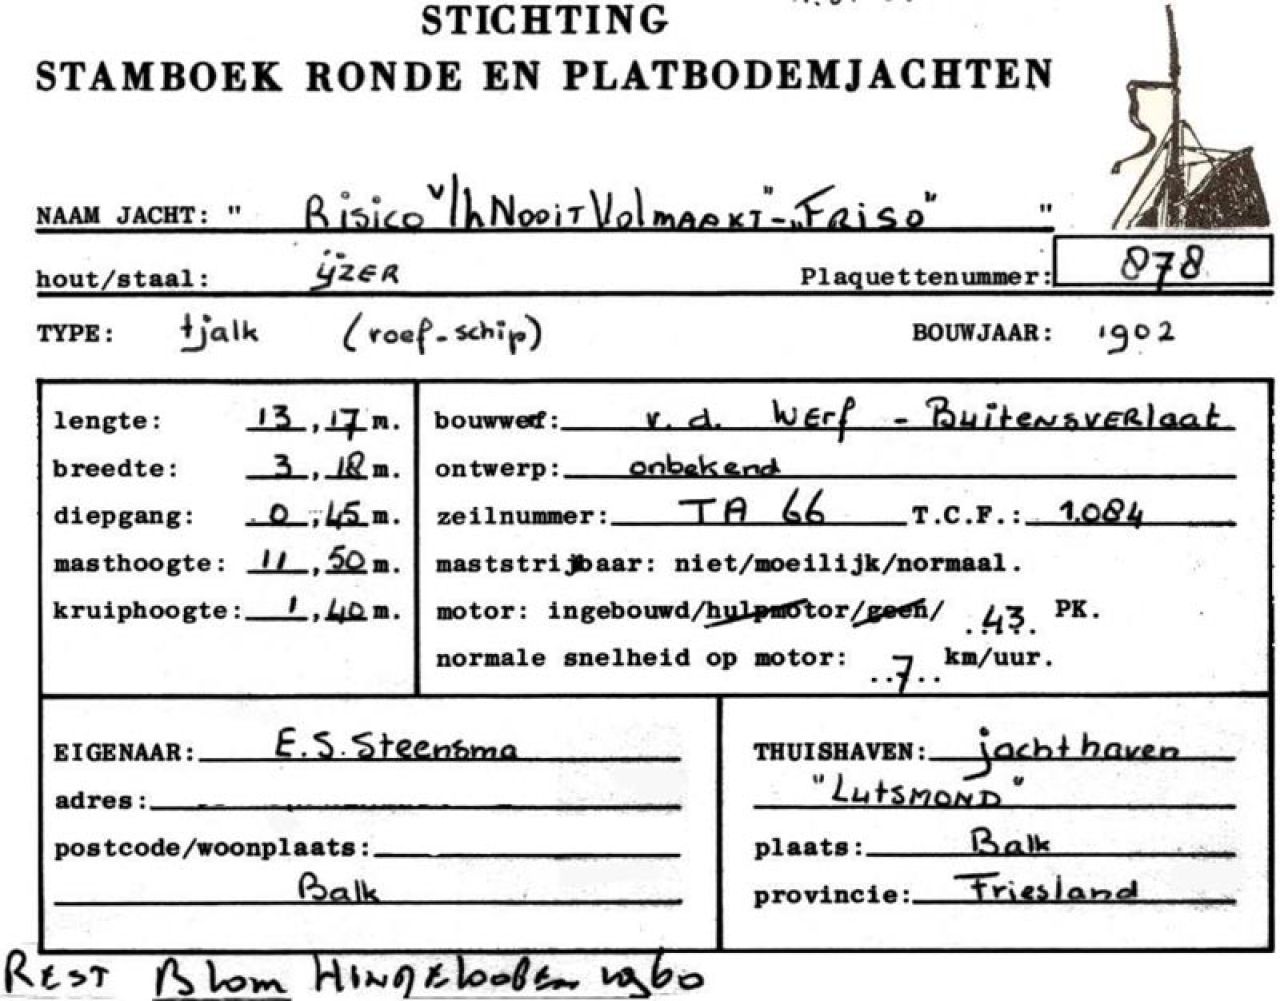 STICHTING
STAMBOEK RONDE EN PLATBODEMJACHTEN
NAAM JACHT: " Risico v/h "Nooit Volmaakt" - "Friso" "
hout/staal: ijzer Plaquettenummer: 878
TYPE: tjalk (roef-schip) BOUWJAAR: 1902
lengte: 13,17 m. bouwwerf: v.d. Werf - Buitensverlaat
breedte: 3,18 m. ontwerp: onbekend
diepgang: 0,45 m. zeilnummer: TA 66 T.C.F.: 1.084
masthoogte: 11,50 m. maststrijkbaar: niet/moeilijk/normaal.
kruiphoogte: 1,40 m. motor: ingebouwd/hulpmotor/geen/ ..43.. PK.
normale snelheid op motor: ..7.. km/uur.
EIGENAAR: E.S. Steensma THUISHAVEN: jachthaven
adres: "Lutsmond"
postcode/woonplaats: plaats: Balk
Balk provincie: Friesland
REST Blom 1960